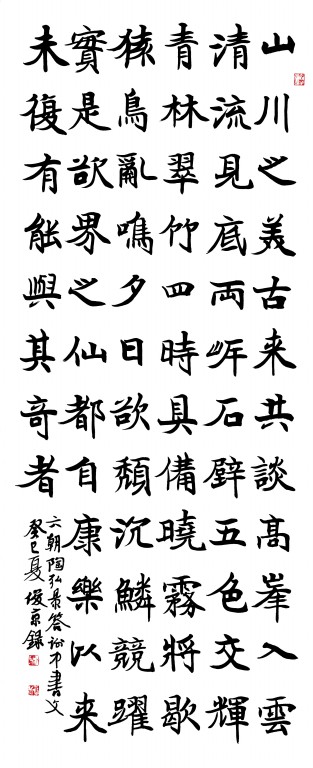 山川之美古来共談高峯入雲
清流見底兩岸石壁五色交輝
青林翠竹四時具備曉霧將歇
猿鳥亂鳴夕日欲頹沉鱗競躍
實是欲界之仙都自康樂以来
未復有能與其奇者
六朝陶弘景答謝中書文
癸巳夏